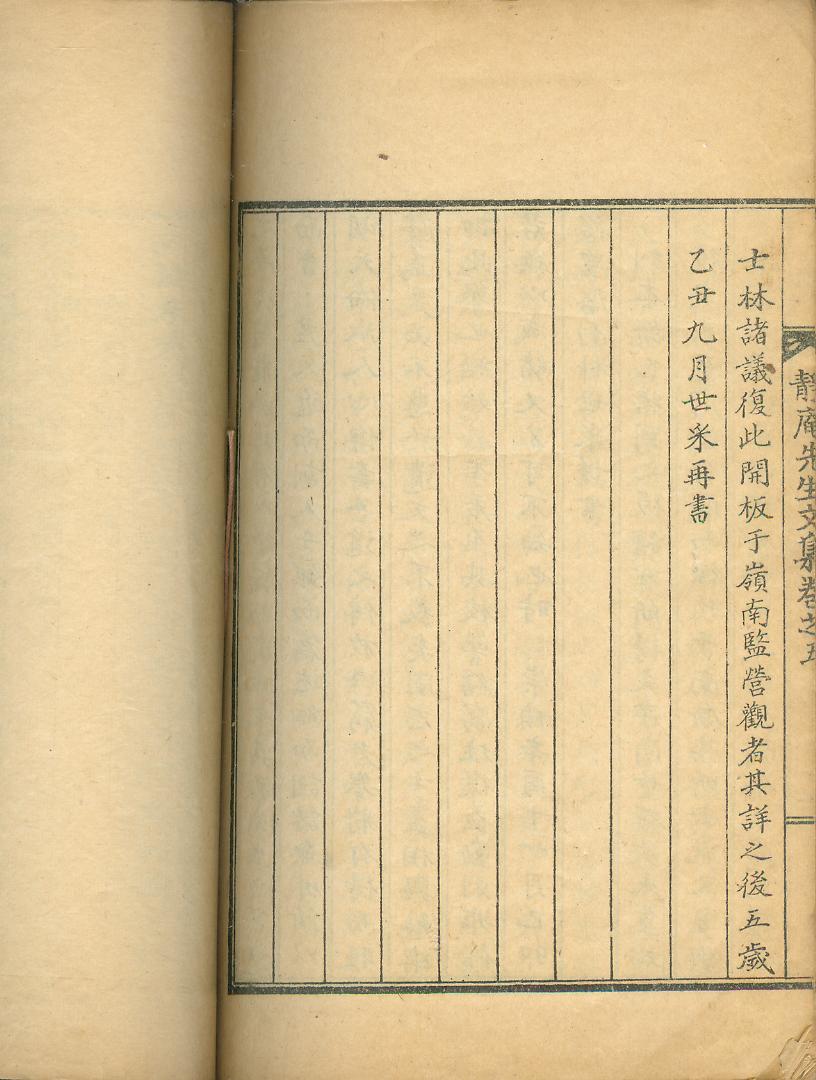 靜庵先生文集卷之五
士林諸議復此開板于嶺南監營觀者其詳之後五歲
乙丑九月世采再書